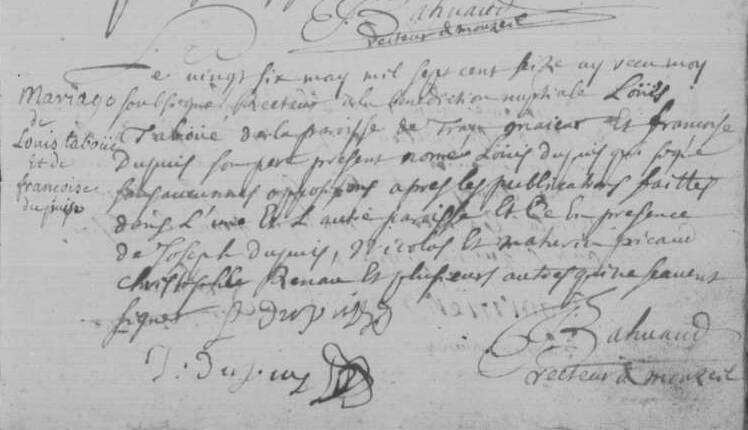 Bahuaud
recteur de mouzeil
Mariage
de
Louis taboüe
Et de
francoise
dupuis
Le vingt six may mil sept cent seize ay receu moy
soubsigné Recteur a la benediction nuptiale Loüis
Taboüe de la paroisse de Et francoise
Dupuis son pere present nommé Loüis dupuis qui signe
sans aucunnes opposisions apres les publications faittes
dans L'une Et L'autre paroisse Et Ce En presence
de Joseph dupuis, Nicolas Et mathurin picaud
christophle Renau Et plusieurs autres qui ne scavent
signer
J: dupuis
Bahuaud
recteur de mouzeil